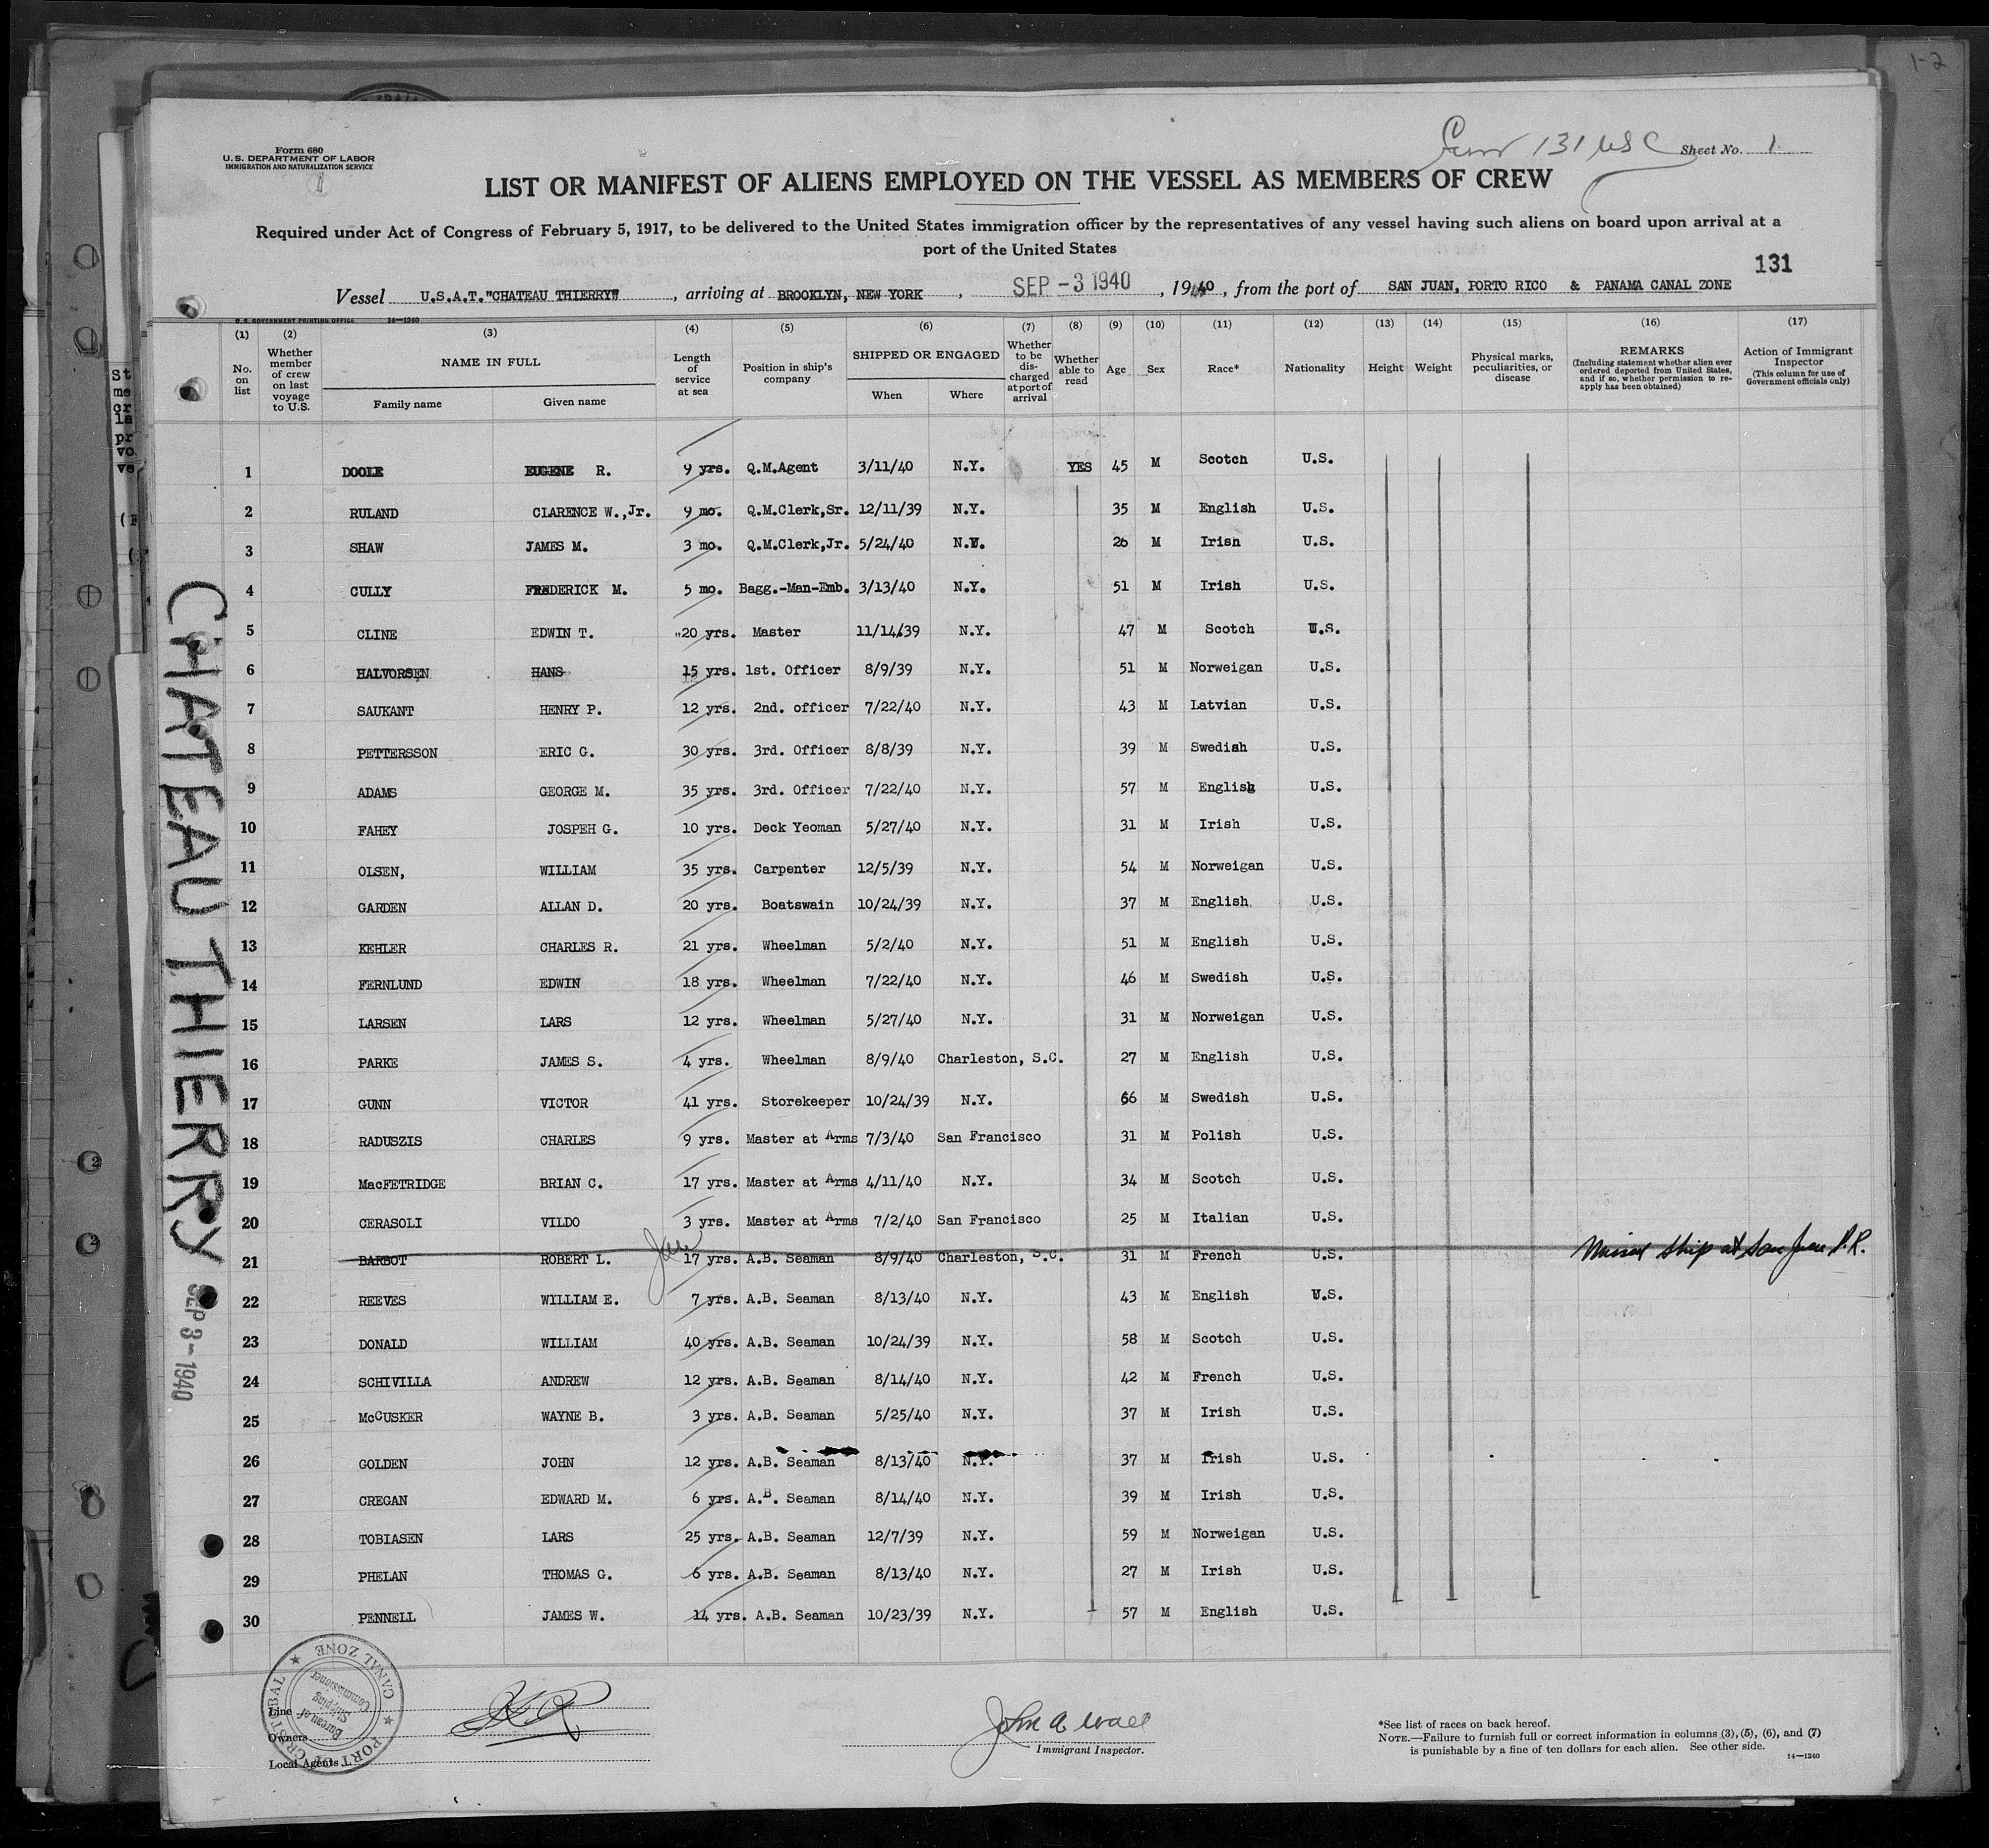 1-2
Form 680
U.S. DEPARTMENT OF LABOR
IMMIGRATION AND NATURALIZATION SERVICE
131 USC
Sheet No. 1
LIST OR MANIFEST OF ALIENS EMPLOYED ON THE VESSEL AS MEMBERS OF CREW
Required under Act of Congress of February 5, 1917, to be delivered to the United States immigration officer by the representatives of any vessel having such aliens on board upon arrival at a
port of the United States
131
Vessel U.S.A.T."CHATEAU THIERRY", arriving at BROOKLYN, NEW YORK, SEP -3 1940, 1940, from the port of SAN JUAN, PORTO RICO & PANAMA CANAL ZONE
U. S. GOVERNMENT PRINTING OFFICE 14—1240
(1) (2) (3) (4) (5) (6) (7) (8) (9) (10) (11) (12) (13) (14) (15) (16) (17)
No. on list
Whether member of crew on last voyage to U.S.
NAME IN FULL
Family name
Given name
Length of service at sea
Position in ship's company
SHIPPED OR ENGAGED
When
Where
Whether to be discharged at port of arrival
Whether able to read
Age
Sex
Race*
Nationality
Height
Weight
Physical marks, peculiarities, or disease
REMARKS
(Including statement whether alien ever ordered deported from United States, and if so, whether permission to reapply has been obtained)
Action of Immigrant Inspector
(This column for use of Government officials only)
1 DOOLE EUGENE R. 9 yrs. Q.M.Agent 3/11/40 N.Y. YES 45 M Scotch U.S.
2 RULAND CLARENCE W.,Jr. 9 mo. Q.M.Clerk,Sr. 12/11/39 N.Y. 35 M English U.S.
3 SHAW JAMES M. 3 mo. Q.M.Clerk,Jr. 5/24/40 N.Y. 26 M Irish U.S.
4 CULLY FREDERICK M. 5 mo. Bagg.-Man-Emb. 3/13/40 N.Y. 51 M Irish U.S.
5 CLINE EDWIN T. 20 yrs. Master 11/14/39 N.Y. 47 M Scotch U.S.
6 HALVORSEN HANS 15 yrs. 1st. Officer 8/9/39 N.Y. 51 M Norweigan U.S.
7 SAUKANT HENRY P. 12 yrs. 2nd. officer 7/22/40 N.Y. 43 M Latvian U.S.
8 PETTERSSON ERIC G. 30 yrs. 3rd. Officer 8/8/39 N.Y. 39 M Swedish U.S.
9 ADAMS GEORGE M. 35 yrs. 3rd. Officer 7/22/40 N.Y. 57 M English U.S.
10 FAHEY JOSPEH G. 10 yrs. Deck Yeoman 5/27/40 N.Y. 31 M Irish U.S.
11 OLSEN, WILLIAM 35 yrs. Carpenter 12/5/39 N.Y. 54 M Norweigan U.S.
12 GARDEN ALLAN D. 20 yrs. Boatswain 10/24/39 N.Y. 37 M English U.S.
13 KEHLER CHARLES R. 21 yrs. Wheelman 5/2/40 N.Y. 51 M English U.S.
14 FERNLUND EDWIN 18 yrs. Wheelman 7/22/40 N.Y. 46 M Swedish U.S.
15 LARSEN LARS 12 yrs. Wheelman 5/27/40 N.Y. 31 M Norweigan U.S.
16 PARKE JAMES S. 4 yrs. Wheelman 8/9/40 Charleston, S.C. 27 M English U.S.
17 GUNN VICTOR 41 yrs. Storekeeper 10/24/39 N.Y. 66 M Swedish U.S.
18 RADUSZIS CHARLES 9 yrs. Master at Arms 7/3/40 San Francisco 31 M Polish U.S.
19 MacFETRIDGE BRIAN C. 17 yrs. Master at Arms 4/11/40 N.Y. 34 M Scotch U.S.
20 CERASOLI VILDO 3 yrs. Master at Arms 7/2/40 San Francisco 25 M Italian U.S.
21 BARBOT ROBERT L. 17 yrs. A.B. Seaman 8/9/40 Charleston, S.C. 31 M French U.S. Missed ship at San Juan P.R.
22 REEVES WYLLIAM E. 7 yrs. A.B. Seaman 8/13/40 N.Y. 43 M English U.S.
23 DONALD WILLIAM 40 yrs. A.B. Seaman 10/24/39 N.Y. 58 M Scotch U.S.
24 SCHIVILLA ANDREW 12 yrs. A.B. Seaman 8/14/40 N.Y. 42 M French U.S.
25 McCUSKER WAYNE B. 3 yrs. A.B. Seaman 5/25/40 N.Y. 37 M Irish U.S.
26 GOLDEN JOHN 12 yrs. A.B. Seaman 8/13/40 N.Y. 37 M Irish U.S.
27 CREGAN EDWARD M. 6 yrs. A.B. Seaman 8/14/40 N.Y. 39 M Irish U.S.
28 TOBIASEN LARS 25 yrs. A.B. Seaman 12/7/39 N.Y. 59 M Norweigan U.S.
29 PHELAN THOMAS G. 6 yrs. A.B. Seaman 8/13/40 N.Y. 27 M Irish U.S.
30 PENNELL JAMES W. 14 yrs. A.B. Seaman 10/23/39 N.Y. 57 M English U.S.
CHATEAU THIERRY
SEP 3-1940
PORT OF CRISTOBAL ★ CANAL ZONE ★
Bureau of Shipping Commissioner
Line
Owners
Local Agents
John A Wall
Immigrant Inspector.
*See list of races on back hereof.
NOTE.—Failure to furnish full or correct information in columns (3), (5), (6), and (7)
is punishable by a fine of ten dollars for each alien. See other side.
14—1240